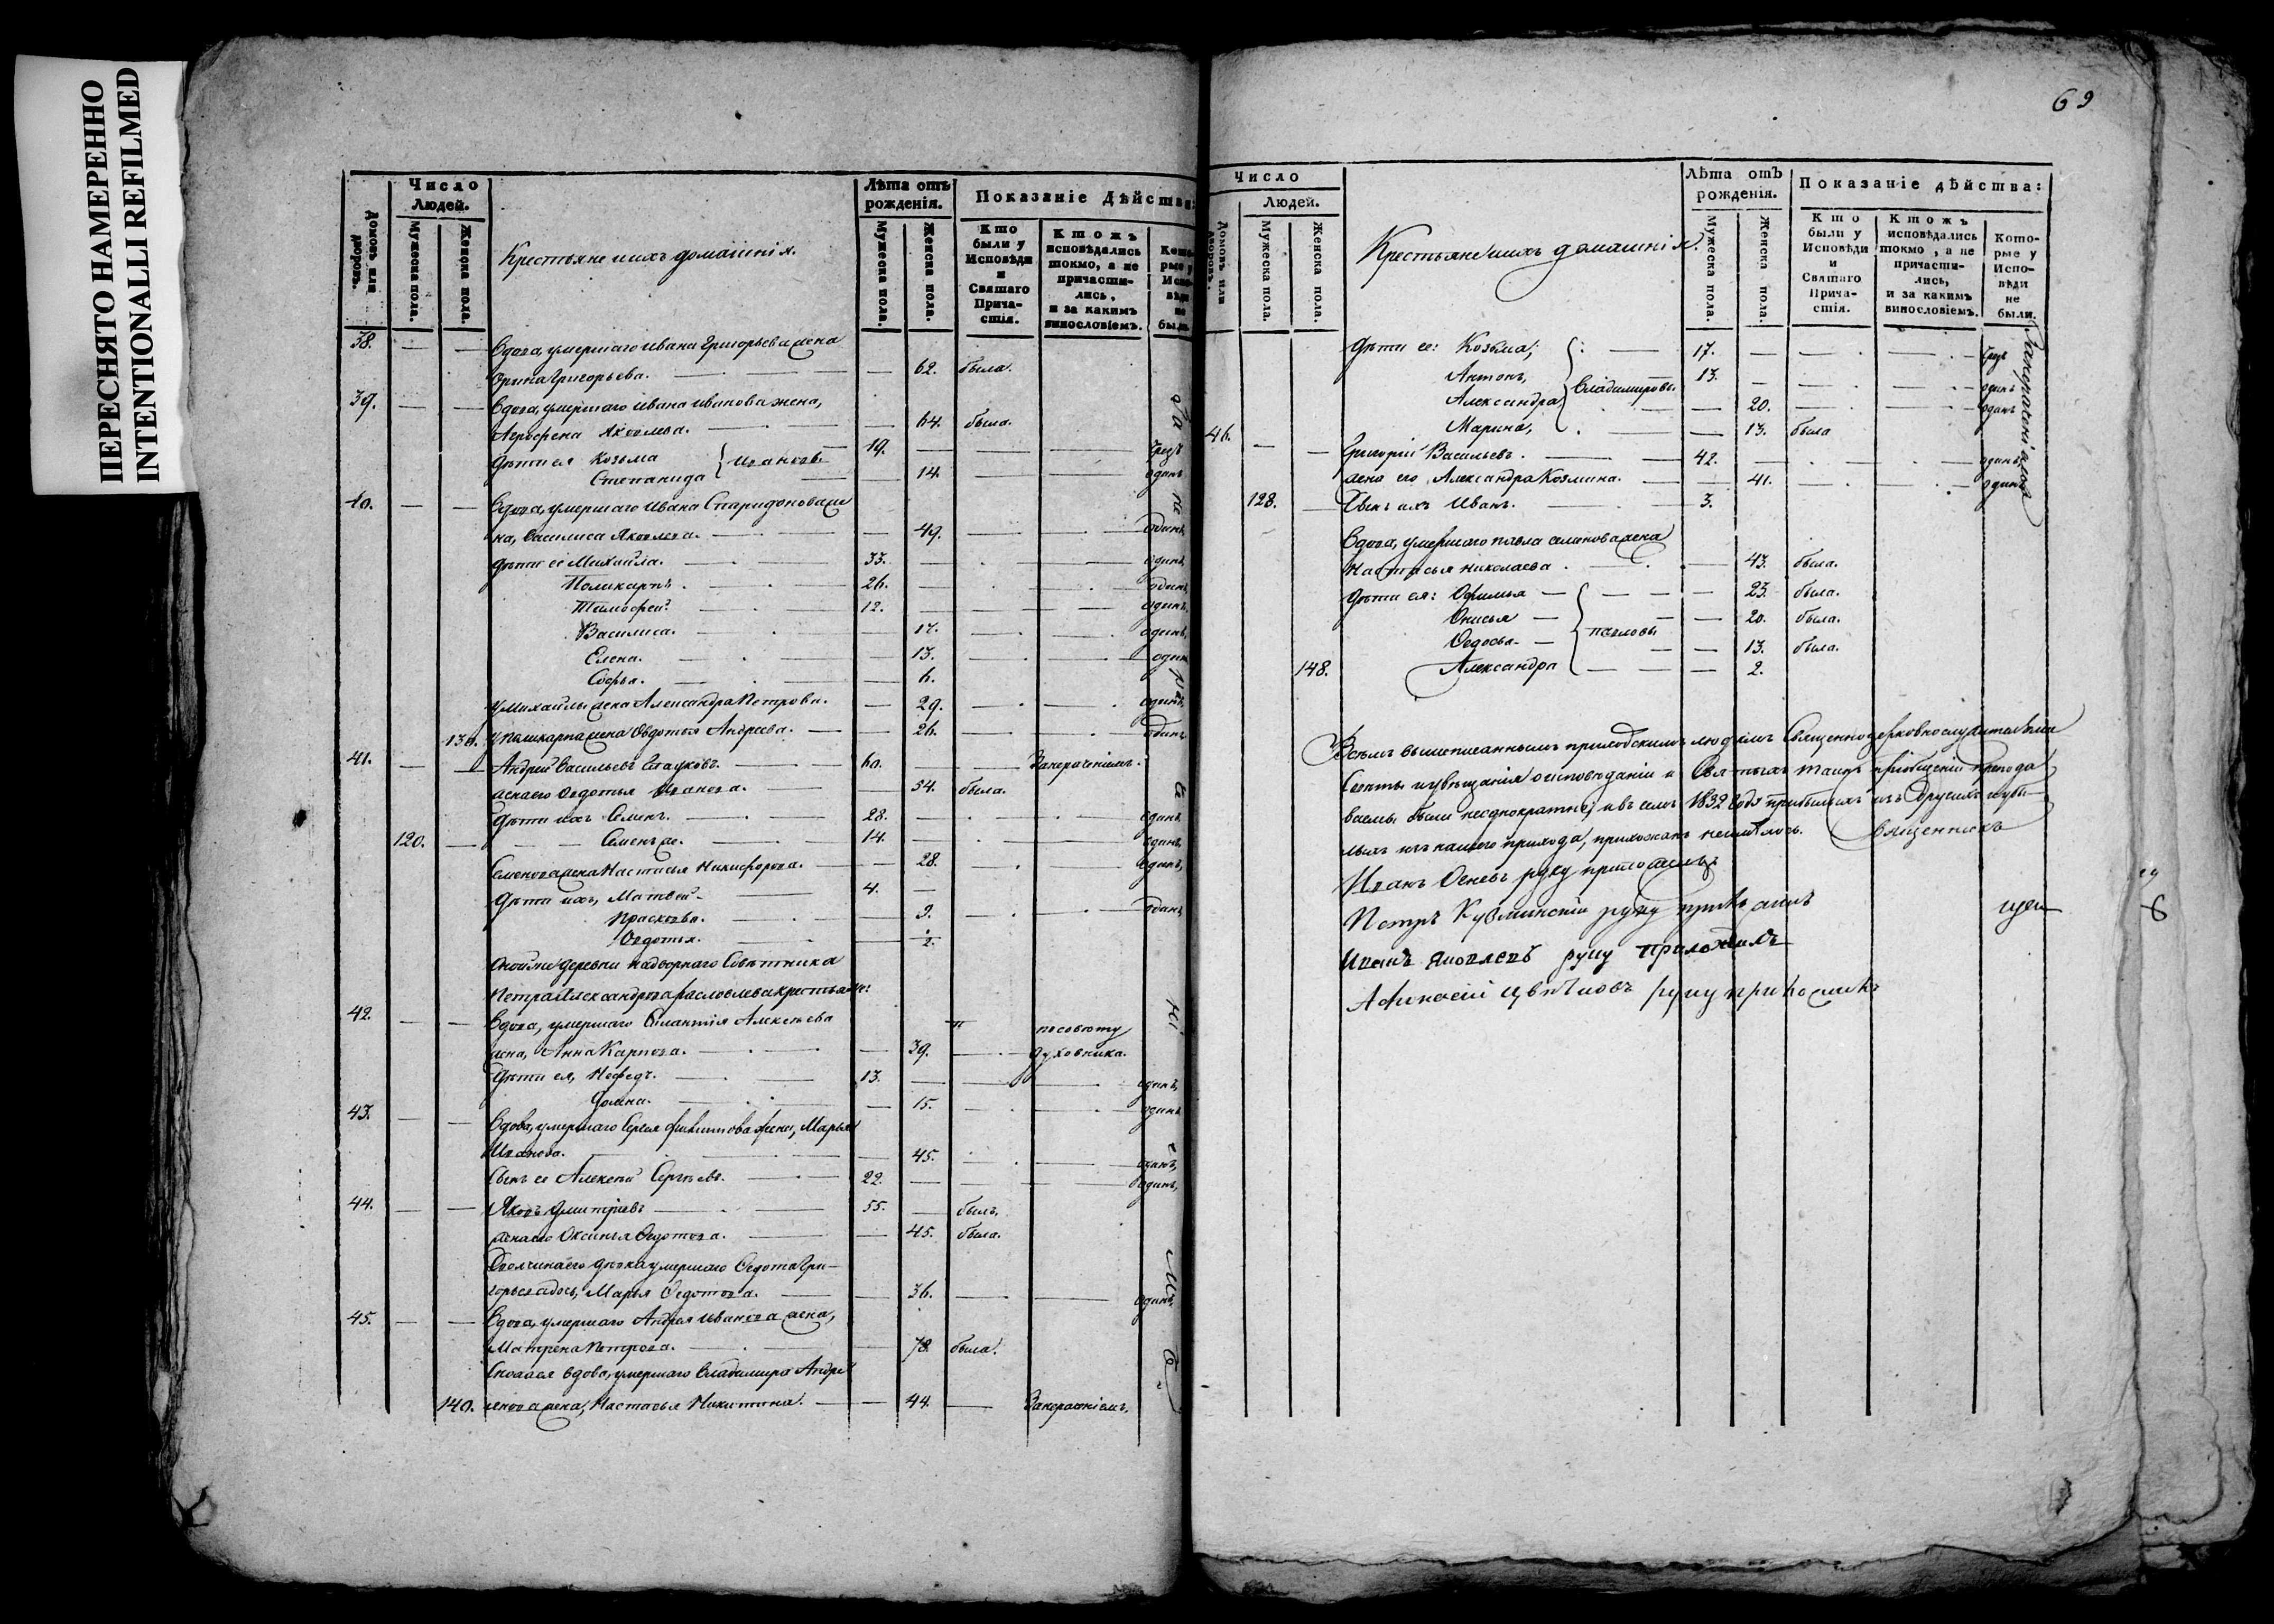 ПЕРЕСНЯТО НАМЕРЕННО
INTENTIONALLI REFILMED
Домовъ или дворовъ.
Число Людей.
Мужеска пола.
Женска пола.
Крестьяне и ихъ домашнія.
Лѣта отъ рожденія.
Мужеска пола.
Женска пола.
Показаніе дѣйства:
Кто были у Исповѣди и Святаго Причастія.
Ктожъ исповѣдались токмо, а не причастились, и за какимъ винословіемъ.
Которые у Исповѣди не были.
38. Вдова, умершаго Ивана Григорьева жена
Орина Григорьева. 62. была.
39. Вдова, умершаго Ивана Иванова жена,
Агрофена Яковлева. 64. была.
Дѣти ея Козьма Ивановы 19.
Степанида 14. одинъ
40. Вдова, умершаго Ивана Спиридонова же
на, Василиса Яковлева. 49. одинъ,
Дѣти ее Михайла. 33. одинъ,
Поликарпъ. 26. одинъ,
Тимофей. 12. одинъ,
Василиса. 17. одинъ,
Елена. 13. один
Софья. 6.
У Михайлы жена Александра Петрова. 29. одинъ,
130. У Поликарпа жена Овдотья Андреева. 26. одинъ
41. Андрей Васильевъ 60. За
жена его Овдотья Иванова. 54. была.
Дѣти ихъ Семенъ. 28. одинъ
120. Семенъ же. 14. одинъ,
Семенова жена Настасья Никифорова. 28. одинъ,
Дѣти ихъ, Матвей 4.
Прасковья. 9. одинъ
Овдотья. 2.
Оной же деревни надворнаго Совѣтника
Петра Александрова крестьяне:
42. Вдова, умершаго Алексѣева по совѣту
жена, Анна Карпова. 39. духовника.
Дѣти ея, Нефедъ. 13. одинъ,
Домна. 15. одинъ
43. Вдова, умершаго Сергея жена, Марья
Иванова. 45. одинъ,
Сынъ ее Алексей Сергѣевъ. 22. одинъ,
44. Яковъ Дмитріевъ 55. былъ.
жена его Оксинья Ѳедотова. 45. была.
умершаго Ѳедота Гри-
горьева дочь, Марья Ѳедотова. 36. одинъ,
45. Вдова, умершаго Андрея Иванова жена,
Матрена Петрова. 78. была.
вдова, умершаго Владимира Андре
140. жена, Настасья Никитина. 44.
69
Домовъ или дворовъ.
Число Людей.
Мужеска пола.
Женска пола.
Крестьяне и ихъ домашнія.
Лѣта отъ рожденія.
Мужеска пола.
Женска пола.
Показаніе дѣйства:
Кто были у Исповѣди и Святаго Причастія.
Ктожъ исповѣдались токмо, а не причастились, и за какимъ винословіемъ.
Которые у Исповѣди не были.
Дѣти ее: Козьма, 17.
Антонъ, Владимировы 13. одинъ
Александра, 20. одинъ
Марина, 13. была
46. Григорій Васильевъ. 42. одинъ,
жена его Александра Козмина. 41. одинъ
128. Сынъ ихъ Иванъ. 3.
Вдова, умершаго Павла Семенова жена
Настасья Николаева. 43. была.
Дѣти ея: Офимья 23. была.
Онисья Павловы 20. была.
Ѳедосья 13. была.
148. Александра 2.
Всѣмъ вышеписаннымъ приходскимъ людямъ Священноцерковнослужительми
о исповѣданіи и Святыхъ таинъ пріобщеніи препода
ваемы были неоднократно, и въ семъ 1832 Годѣ прибылыхъ изъ другихъ и убы-
лыхъ изъ нашего прихода, прихожанъ неимѣлось. Священникъ
Иванъ руку приложилъ
Петръ руку приложилъ
Иванъ Яковлевъ руку приложилъ
Афанасій Цвѣтковъ руку приложилъ